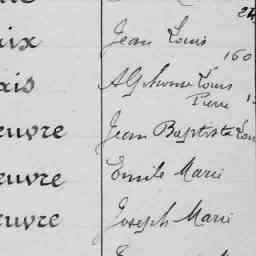 24
aix Jean Louis
160
ais Alphonse Louis
Pierre 1
euvre Jean Baptiste Lou
euvre Emile Marie
euvre Joseph Marie